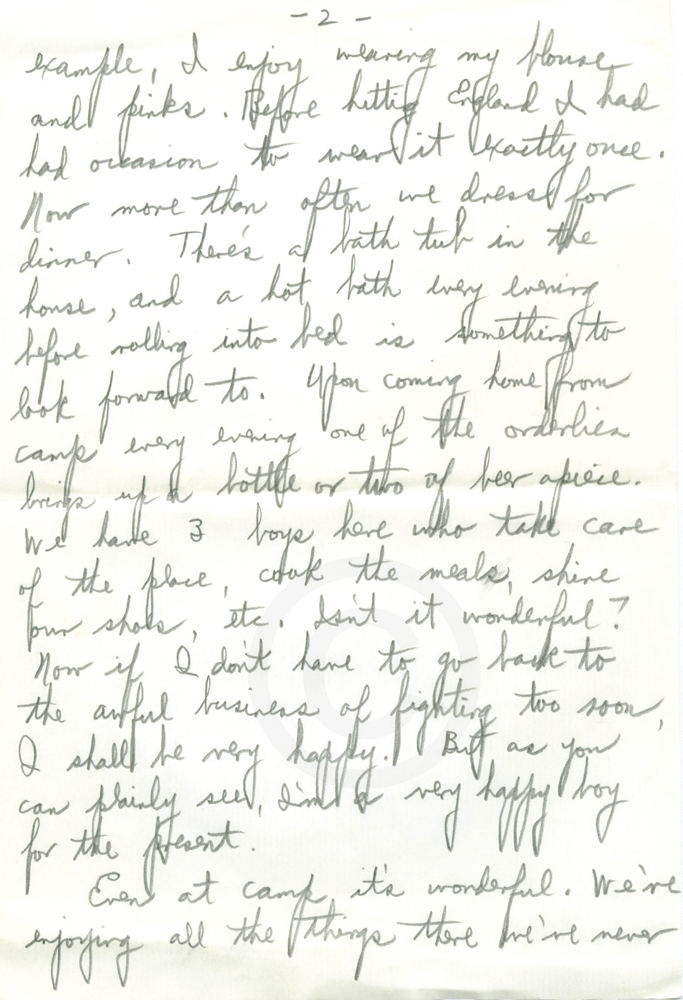 - 2 -
example, I enjoy wearing my blouse
and pinks. Before hitting England I had
had occasion to wear it exactly once.
Now more than often we dress for
dinner. There's a bath tub in the
house, and a hot bath every evening
before rolling into bed is something to
look forward to. Upon coming home from
camp every evening one of the orderlies
brings up a bottle or two of beer apiece.
We have 3 boys here who take care
of the place, cook the meals, shine
our shoes, etc. Isn't it wonderful?
Now if I don't have to go back to
the awful business of fighting too soon,
I shall be very happy. But as you
can plainly see, I'm a very happy boy
for the present.
Even at camp it's wonderful. We've
enjoying all the things there we've never